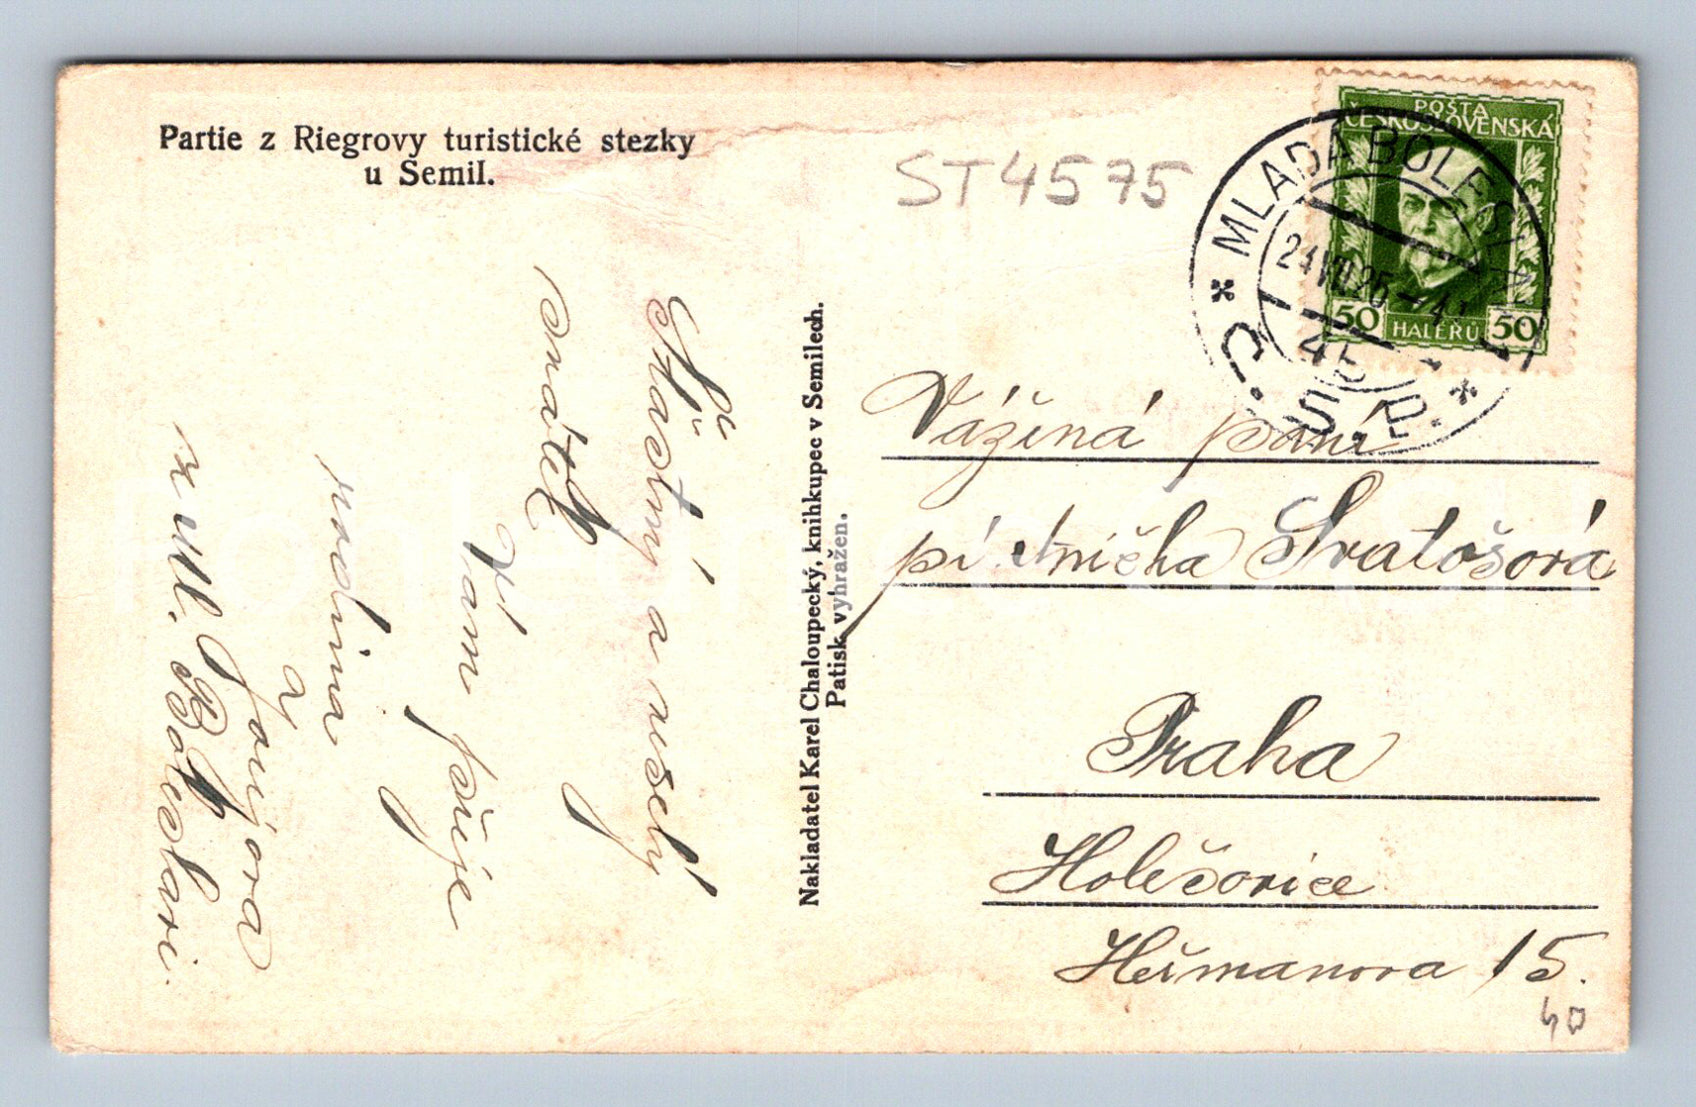 Partie z Riegrovy turistické stezky
u Semil.
ST4575
POŠTA
ČESKOSLOVENSKÁ
50 HALÉŘŮ 50
MLADÁ BOLESLAV
24.VII.26
Č.S.P.
Šťastný a veselý
svátek
Vám přeje
rodina
z Ml. Boleslavi.
Nakladatel Karel Chaloupecký, knihkupec v Semilech.
Patisk vyhražen.
Vážená paní
Svatošová
Praha
Holešovice
Heřmanova 15.
40